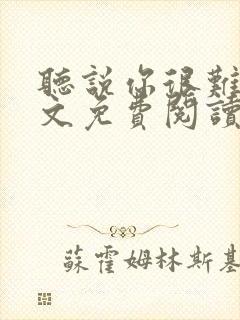 聽說你很難
文免費閱讀
蘇霍姆林斯基